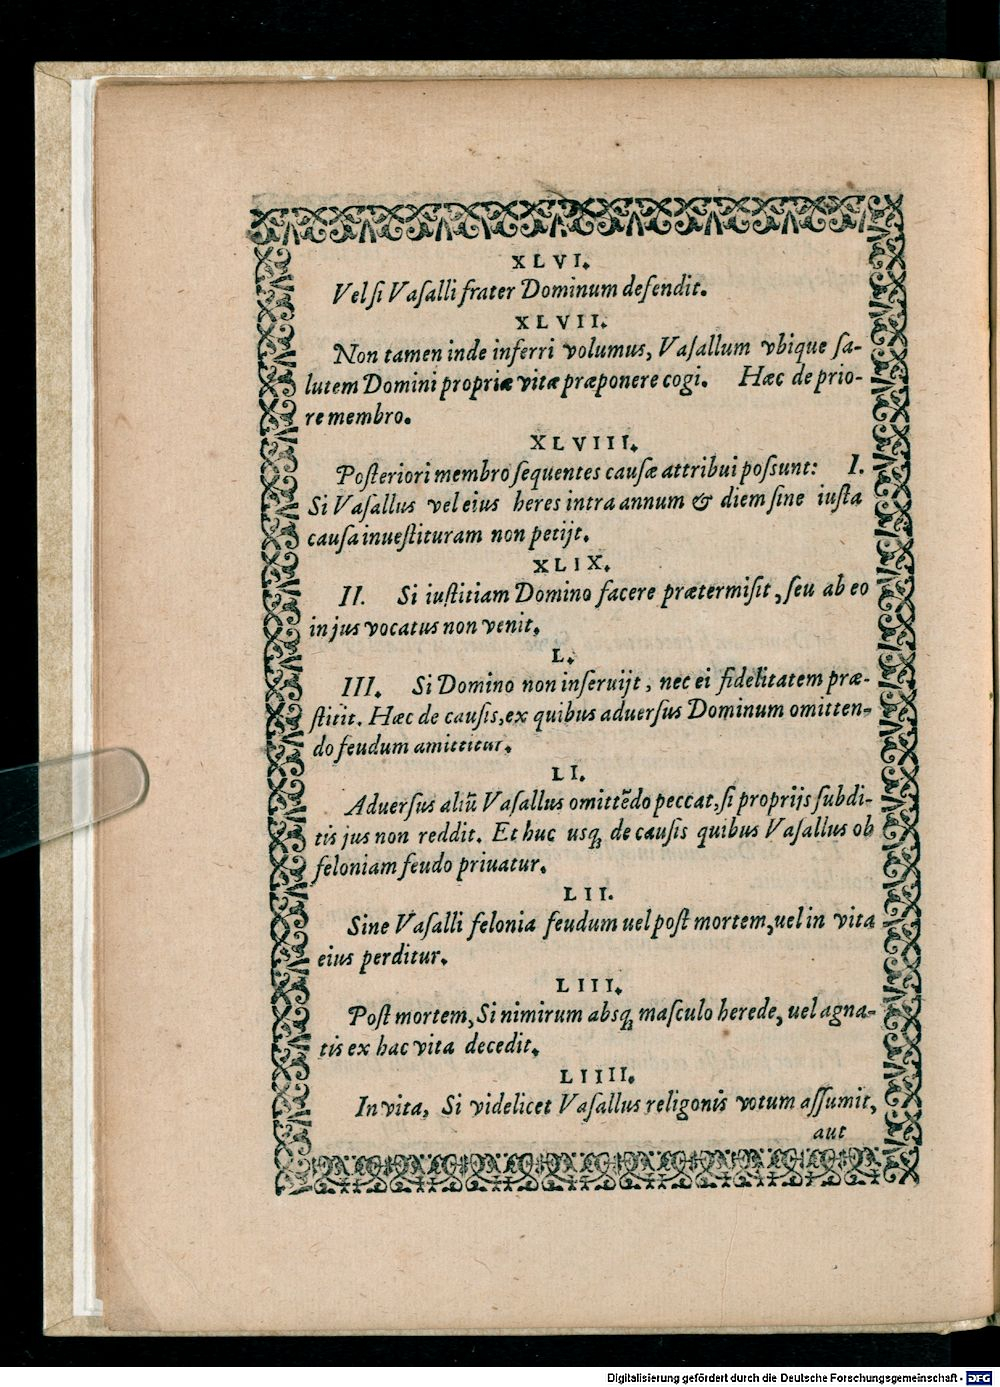 XLVI.
Vel si Vaſalli frater Dominum defendit.
XLVII.
Non tamen inde inferri volumus, Vaſallum vbique ſa-
lutem Domini propriæ vitæ præponere cogi. Hæc de prio-
re membro.
XLVIII.
Poſteriori membro ſequentes cauſæ attribui poſsunt: I.
Si Vaſallus vel eius heres intra annum & diem ſine iuſta
cauſa inueſtituram non petijt.
XLIX.
II. Si iuſtitiam Domino facere prætermiſit, ſeu ab eo
in jus vocatus non venit.
L.
III. Si Domino non inſeruijt, nec ei fidelitatem præ-
ſtitit. Hæc de cauſis, ex quibus aduerſus Dominum omitten-
do feudum amittitur.
LI.
Aduerſus aliũ Vaſallus omittẽdo peccat, ſi proprijs ſubdi-
tis jus non reddit. Et huc uſqꝫ de cauſis quibus Vaſallus ob
feloniam feudo priuatur.
LII.
Sine Vaſalli felonia feudum uel poſt mortem, uel in vita
eius perditur.
LIII.
Poſt mortem, Si nimirum absqꝫ maſculo herede, uel agna-
tis ex hac vita decedit.
LIIII.
In vita, Si videlicet Vaſallus religonis votum aſſumit,
aut
Digitalisierung gefördert durch die Deutsche Forschungsgemeinschaft - DFG